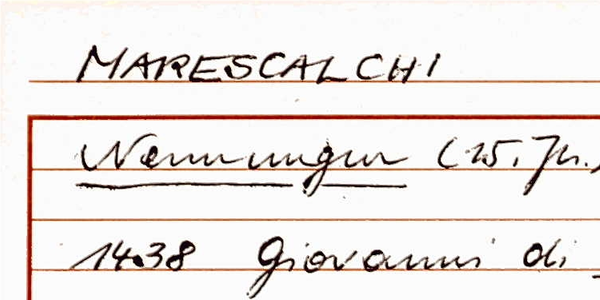 MARESCALCHI
Nennungen (15. Jh.)
1438 Giovanni di